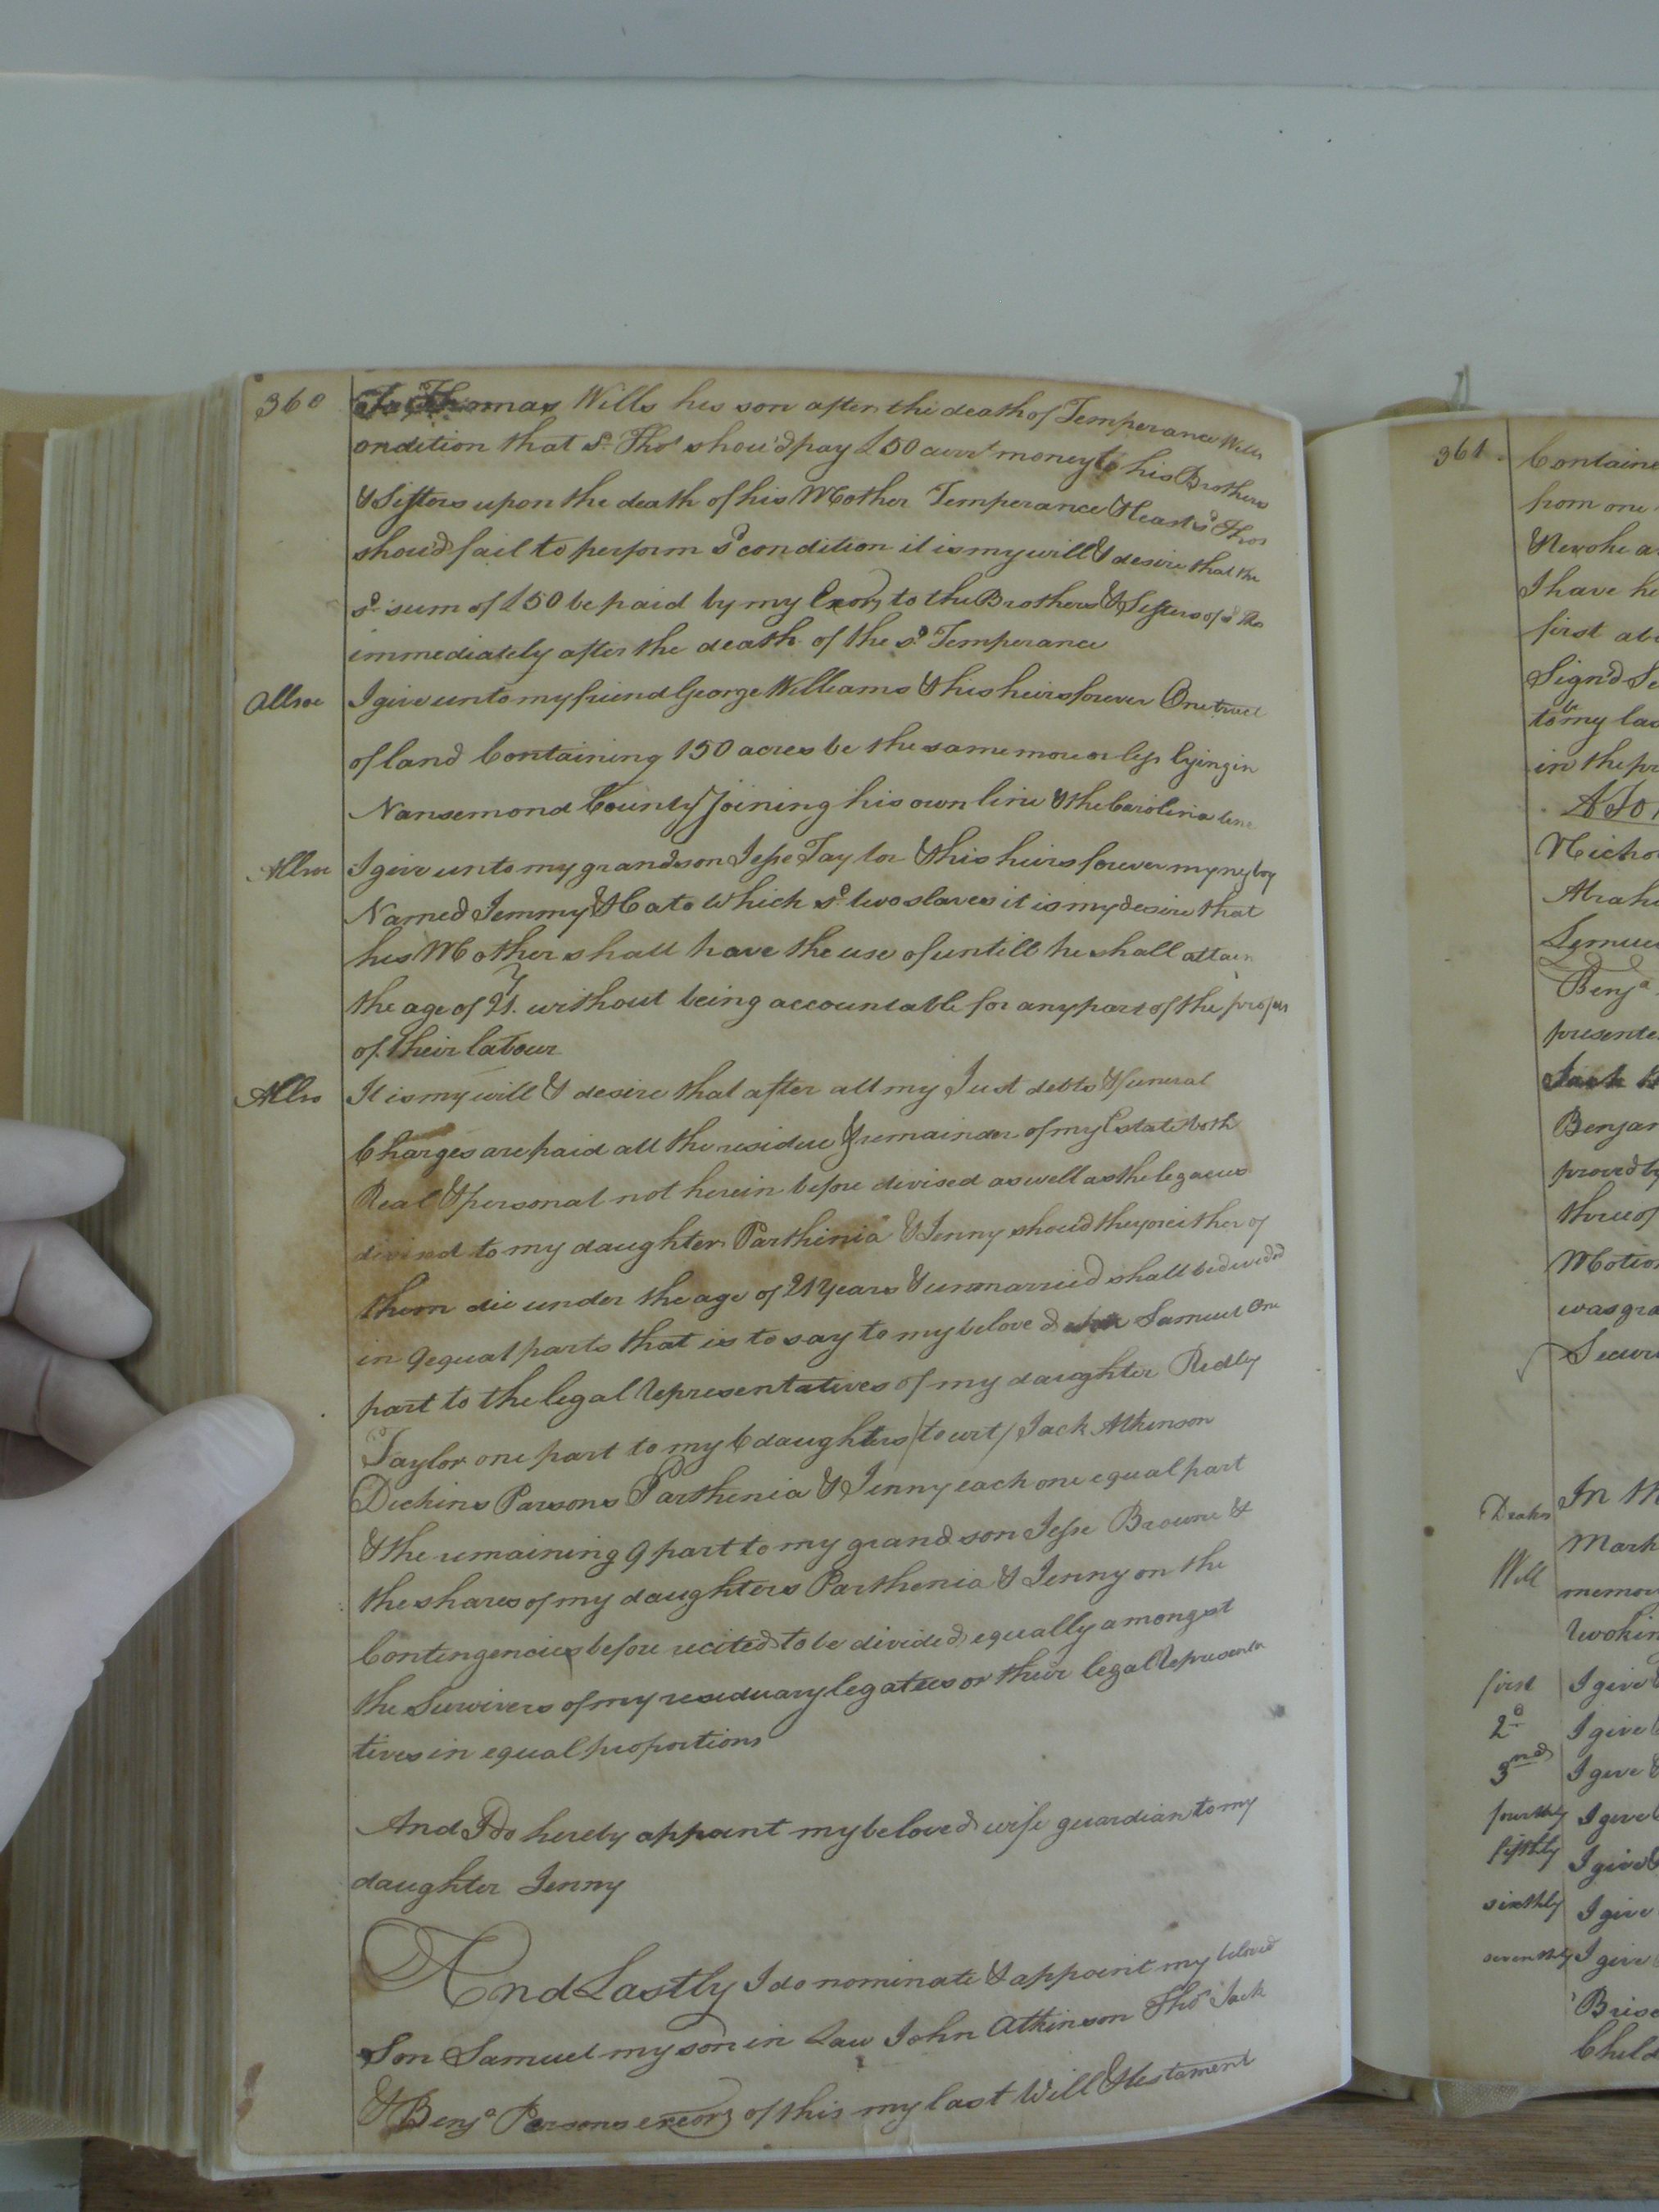 360
To Thomas Wills his son after the death of Temperance Wills
ondition that sd. Thos shou'd pay £50 curr.t money to his Brothers
& Sisters upon the death of his Mother Temperance & case sd Thos
shou'd fail to perform sd condition it is my will & desire that the
sd. sum of £50 be paid by my Exors to the Brothers & Sisters of sd Thos
immediately after the death of the sd Temperance
Allsoe I give unto my friend George Williams & his heirs forever One tract
of land Containing 150 acres be the same more or less lying in
Nansemond County Joining his own line & the Carolina line
Allsoe I give unto my grandson Jesse Taylor & his heirs forever my neg boy
Named Jemmy & Cate Which sd two slaves it is my desire that
his Mother shall have the use of untill he shall attain
the age of 21. without being accountable for any part of the profits
of their labour
Allso It is my will & desire that after all my Just debts & funeral
Charges are paid all the residue & remainder of my Estate both
Real & personal not herein before devised as well as the legacies
devised to my daughters Parthinia & Jenny shoud they or either of
them die under the age of 21 Years & unmarried shall be devided
in 9 equal parts that is to say to my beloved son Samuel One
part to the legal Representatives of my daughter Ridley
Taylor one part to my 6 daughters (to wit) Jack Atkinson
Dickins Parsons Parthenia & Jenny each one equal part
& the remaining 9 part to my grand son Jesse Browne &
the shares of my daughters Parthenia & Jenny on the
Contingencies before recited to be divided equally amongst
the Survivers of my residuary legatees or their legal Representa
tives in equal proportions
And I do hereby appoint my beloved wife guardian to my
daughter Jenny
And Lastly I do nominate & appoint my beloved
Son Samuel my son in Law John Atkinson Thos Jack
& Benja Parsons exors of this my last Will & testament
361
Containe
from one
& Revoke a
I have he
first abo
Sign'd Se
to be my las
in the pr
Nicho
Abrah
Lemue
Benja
presente
Jack
Benjam
proved by
three of
Motion
was gra
Securi
Deakes In th
Will Mark
memory
first I give
2d I give
3rd I give &
fourthly I give
fifthly I give &
sixthly I give
seventhly I give
Child